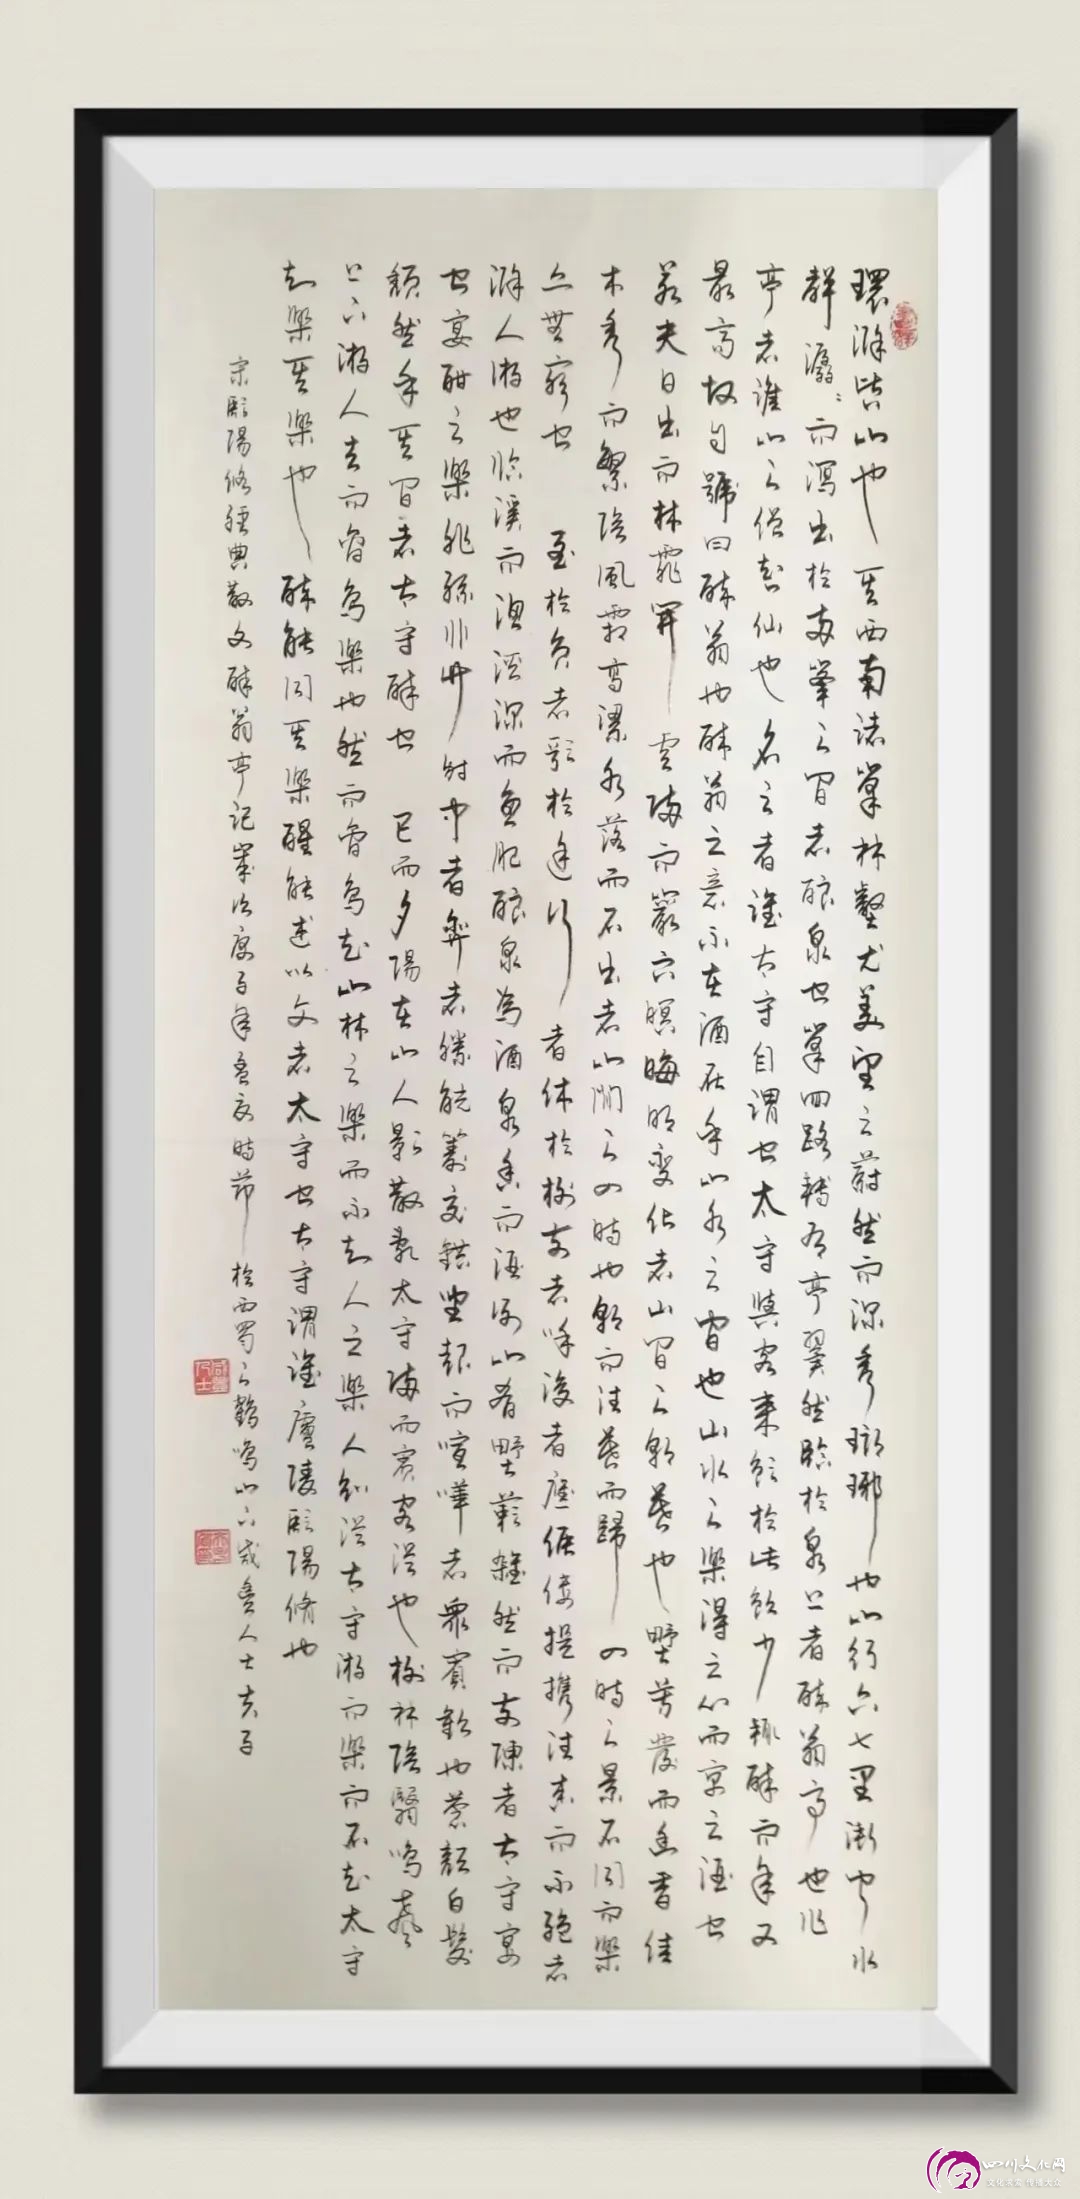 環滁皆山也其西南諸峯林壑尤美望之蔚然而深秀瑯琊也山行六七里漸聞水
聲潺潺而瀉出於兩峯之間者釀泉也峯回路轉有亭翼然臨於泉上者醉翁亭也作
亭者誰山之僧智仙也名之者誰太守自謂也太守與客來飲於此飲少輒醉而年又
最高故自號曰醉翁也醉翁之意不在酒在乎山水之間也山水之樂得之心而寓之酒也
若夫日出而林霏開雲歸而巖穴暝晦明變化者山間之朝暮也野芳發而幽香佳
木秀而繁陰風霜高潔水落而石出者山間之四時也朝而往暮而歸四時之景不同而樂
亦無窮也至於負者歌於途行者休於樹前者呼後者應傴僂提攜往來而不絕者
滁人游也臨溪而漁溪深而魚肥釀泉為酒泉香而酒洌山肴野蔌雜然而前陳者太守宴
也宴酣之樂非絲非竹射中者弈者勝觥籌交錯坐起而喧嘩者衆賓歡也蒼顏白髮
頹然乎其間者太守醉也已而夕陽在山人影散亂太守歸而賓客從也樹林陰翳鳴聲
上下游人去而禽鳥樂也然而禽鳥知山林之樂而不知人之樂人知從太守游而樂而不知太守
之樂其樂也醉能同其樂醒能述以文者太守也太守謂誰廬陵歐陽脩也
宋歐陽脩經典散文醉翁亭記歲次庚子年夏時節於西蜀之鶴鳴山下人士夫子
四川文化网